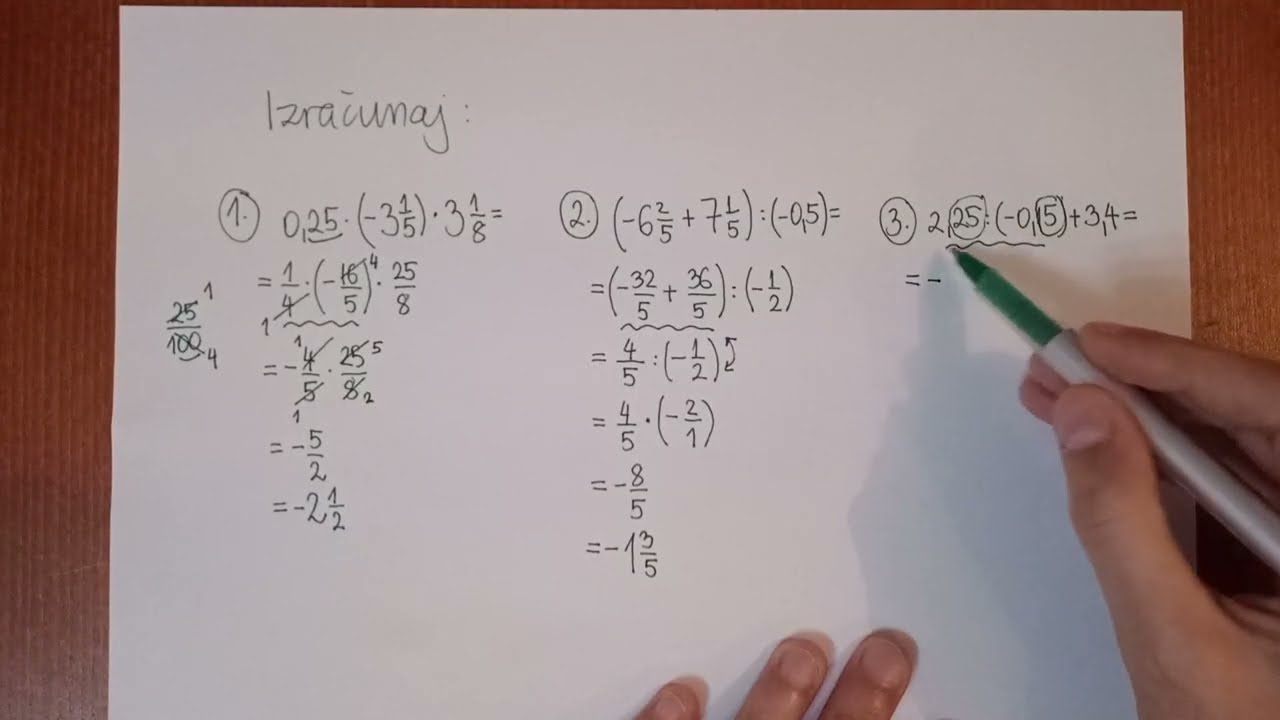 Izračunaj:
1. 0,25 · (-3 1/5) · 3 1/8 =
= 1/4 · (-16/5) · 25/8
25/100 1 4
1 4
= -4/5 · 25/8
1 1 5 2
= -5/2
= -2 1/2
2. (-6 2/5 + 7 1/5) : (-0,5) =
= (-32/5 + 36/5) : (-1/2)
= 4/5 : (-1/2)
= 4/5 · (-2/1)
= -8/5
= -1 3/5
3. 2,25 : (-0,15) + 3,4 =
= -